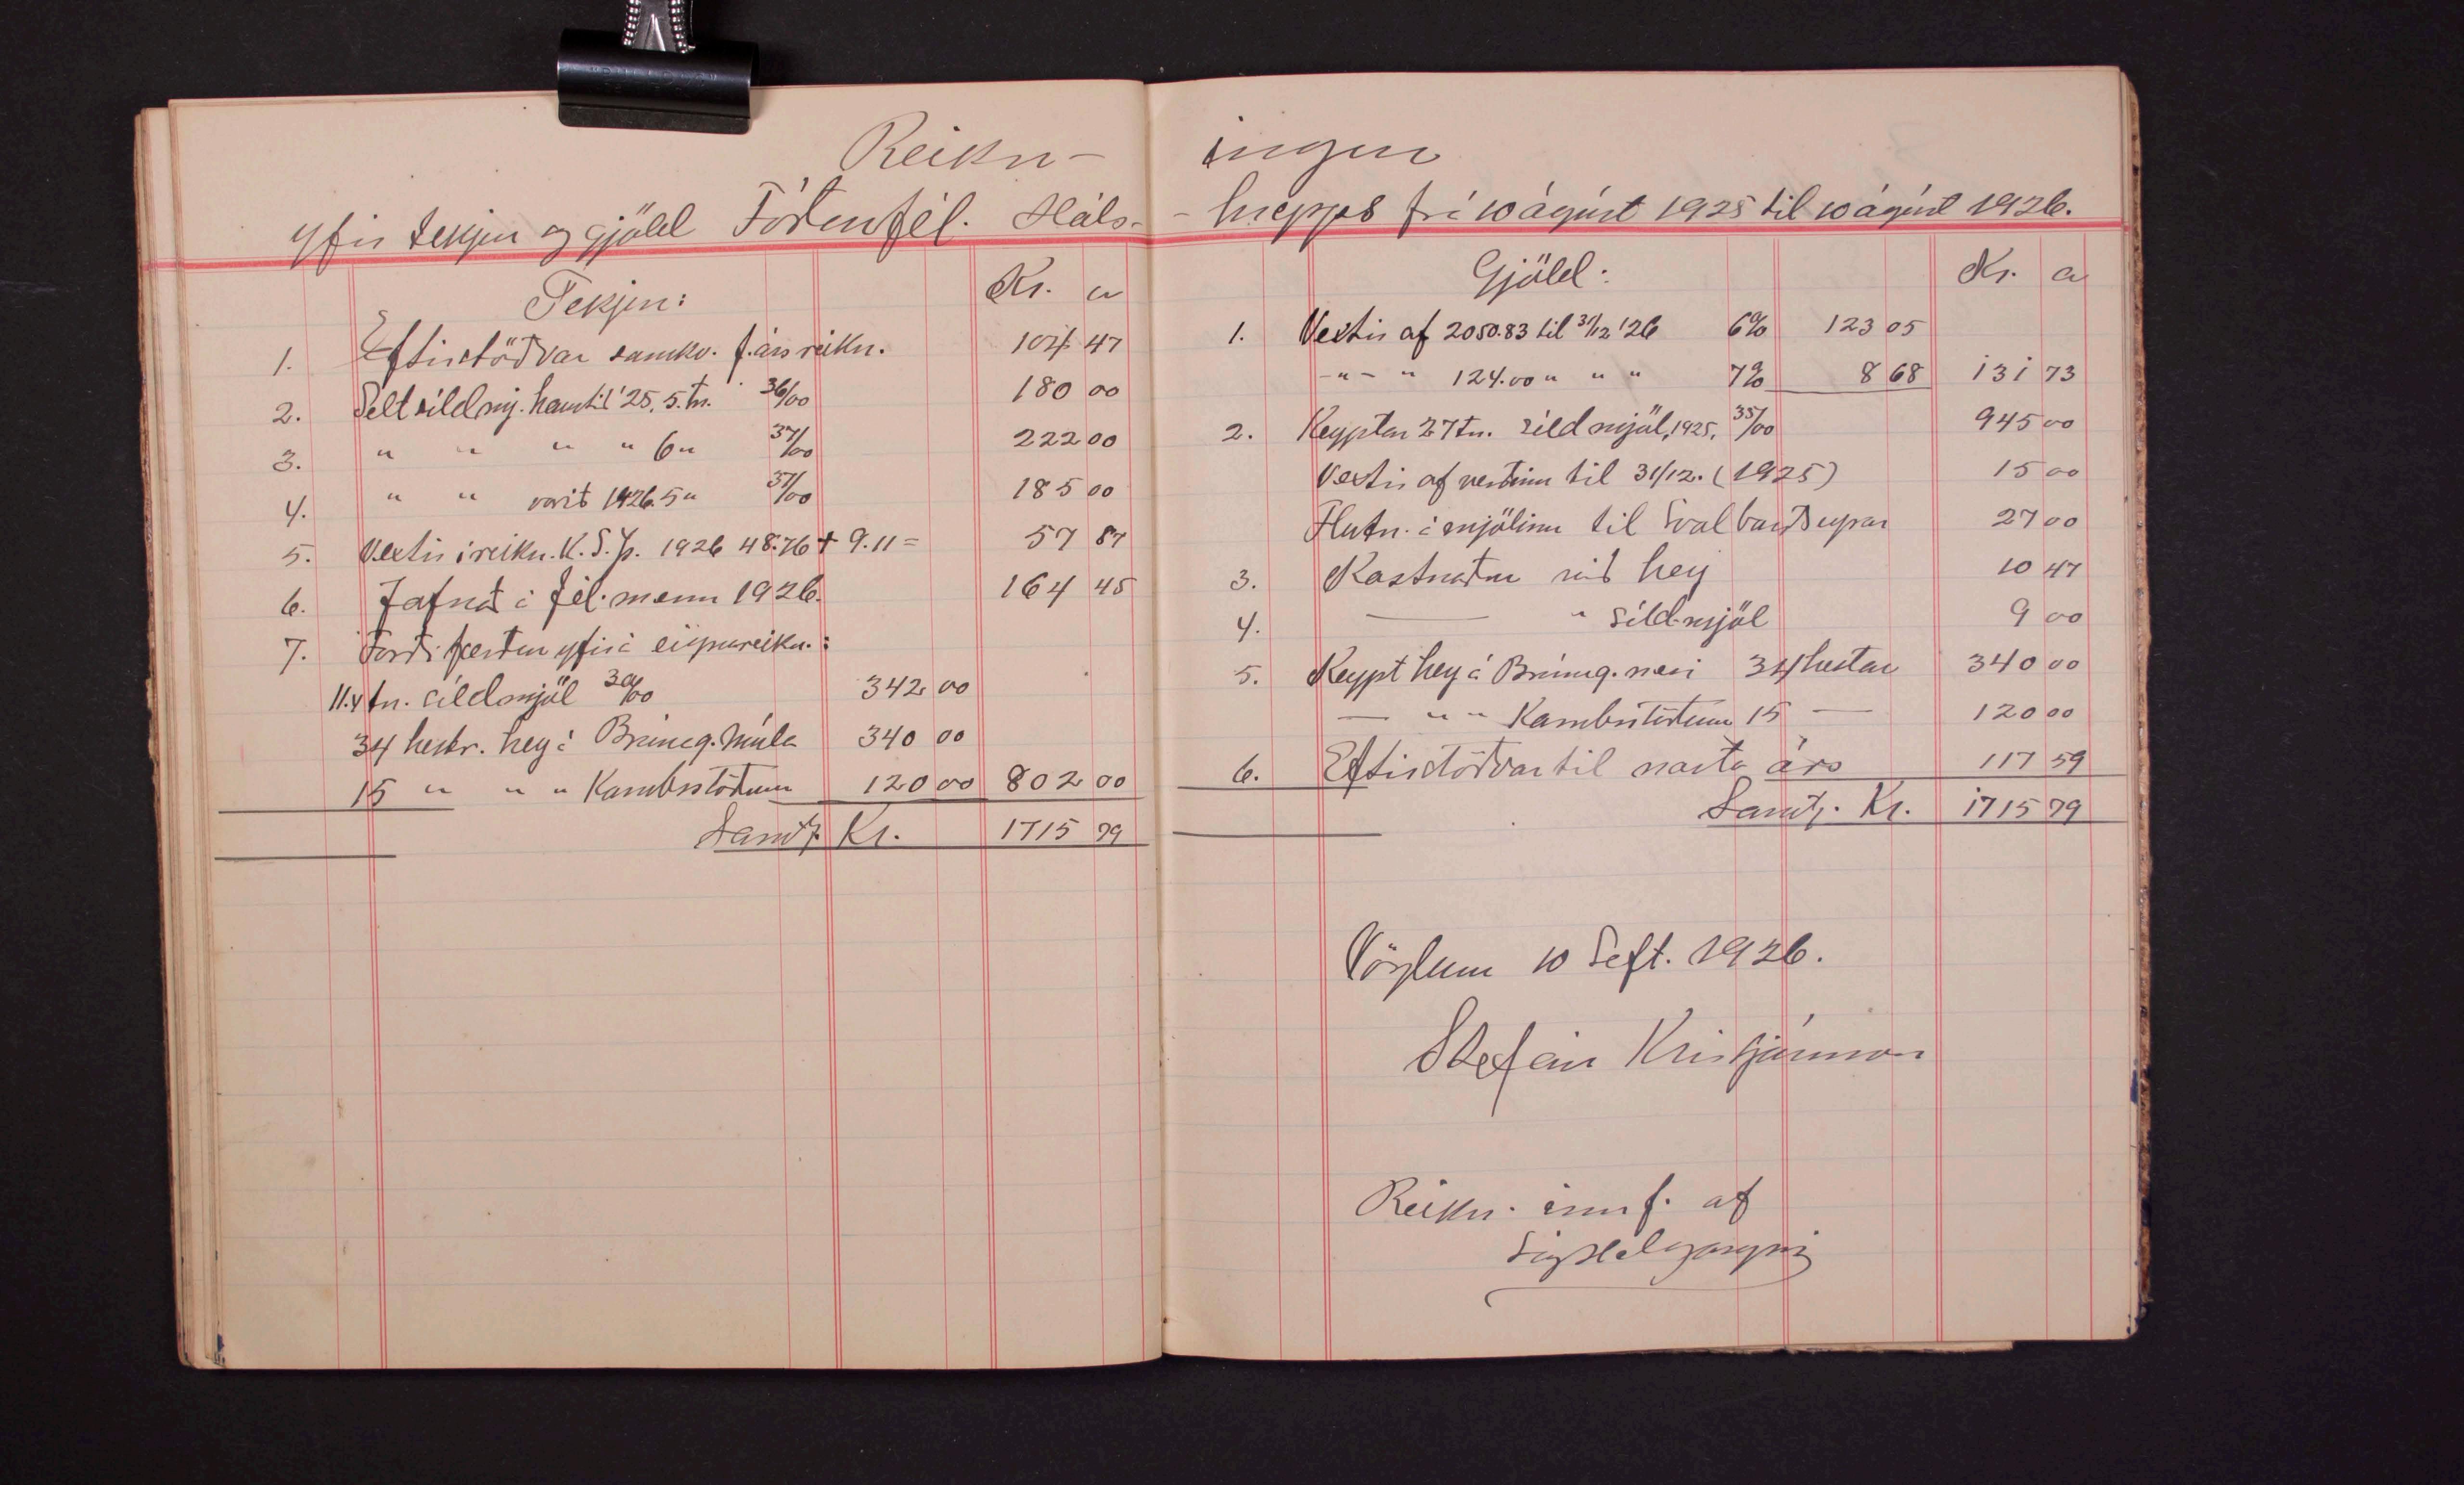 Reikn- ingur
yfir tekjur og gjöld Fóðurfél. Háls- - hrepps frá 10 ágúst 1925 til 10 ágúst 1926.
Tekjur: Kr. a
1. Eftirstöðvar samkv. f. árs reikn. 104 47
2. Selt síldmj. haustið '25, 5. tn. 36/00 180 00
3. " " " " 6 " 37/00 222 00
4. " " vorið 1926. 5 " 37/00 185 00
5. Vextir í reikn. K. S. Þ. 1926 48.76 + 9.11 = 57 87
6. Jafnað á fél. menn 1926. 164 45
7. Forði færður yfir á eignareikn.:
11.4 tn. síldmjöl 30/00 342 00
34 hestr. hey á Brúnag. múla 340 00
15 " " " Kambsstöðum 120 00 802 00
Samt. Kr. 1715 79
Gjöld: Kr. a
1. Vextir af 2050.83 til 31/12 '26 6% 123 05
-"- " 124.00 " " " 7% 8 68 131 73
2. Keyptar 27 tn. síldmjöl, 1925, 35/00 945 00
Vextir af verðinu til 31/12. (1925) 15 00
Flutn. á mjölinu til Svalbarðseyrar 27 00
3. Kostnaður við hey 10 47
4. — " síldmjöl 9 00
5. Keypt hey á Brúnag. 34 hestar 340 00
— " " Kambsstöðum 15 — 120 00
6. Eftirstöðvar til næsta árs 117 59
Samt. Kr. 1715 79
Vöglum 10 Sept. 1926.
Stefán Kristjánsson
Reikn. innf. af